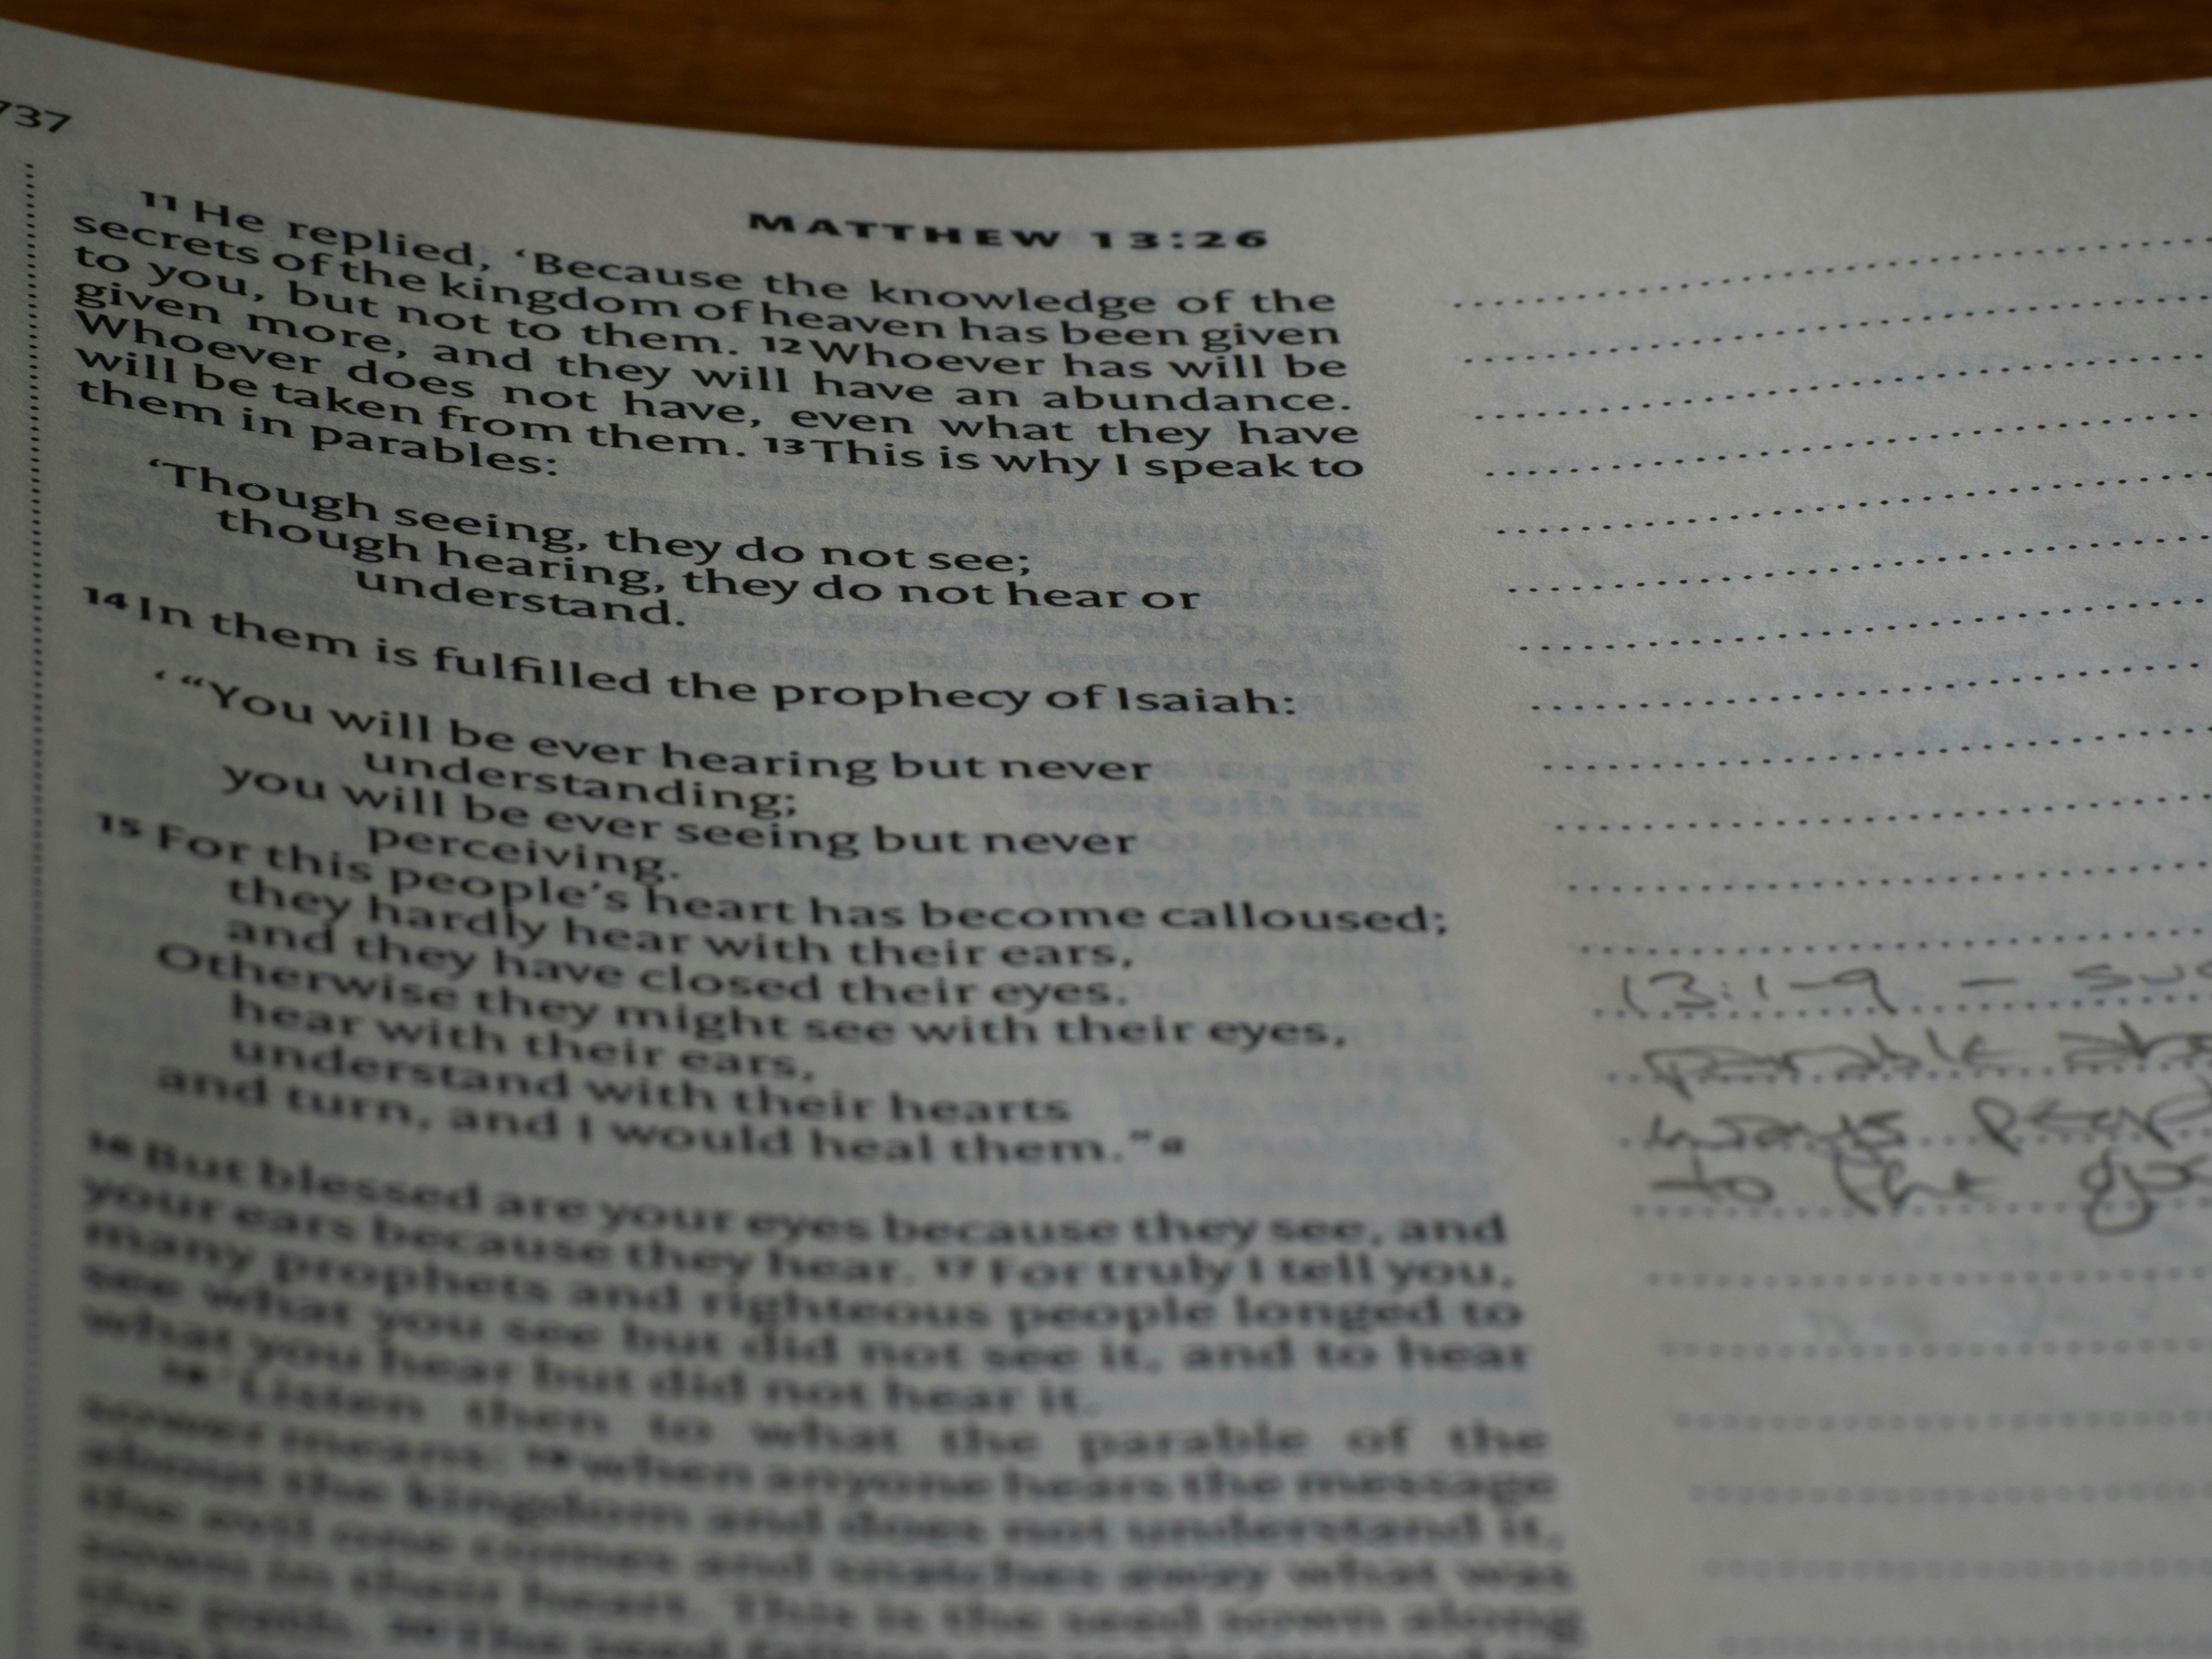 737
MATTHEW 13:26
11 He replied, ‘Because the knowledge of the
secrets of the kingdom of heaven has been given
to you, but not to them. 12 Whoever has will be
given more, and they will have an abundance.
Whoever does not have, even what they have
will be taken from them. 13 This is why I speak to
them in parables:
‘Though seeing, they do not see;
though hearing, they do not hear or
understand.
14 In them is fulfilled the prophecy of Isaiah:
‘ “You will be ever hearing but never
understanding;
you will be ever seeing but never
perceiving.
15 For this people’s heart has become calloused;
they hardly hear with their ears,
and they have closed their eyes.
Otherwise they might see with their eyes,
hear with their ears,
understand with their hearts
and turn, and I would heal them.” a
16 But blessed are your eyes because they see, and
your ears because they hear. 17 For truly I tell you,
many prophets and righteous people longed to
see what you see but did not see it, and to hear
what you hear but did not hear it.
18 ‘Listen then to what the parable of the
sower means: 19 when anyone hears the message
about the kingdom and does not understand it,
the evil one comes and snatches away what was
sown in their heart. This is the seed sown along
the path. 20 The seed falling on
13:1-9 –
parable
ways
to the